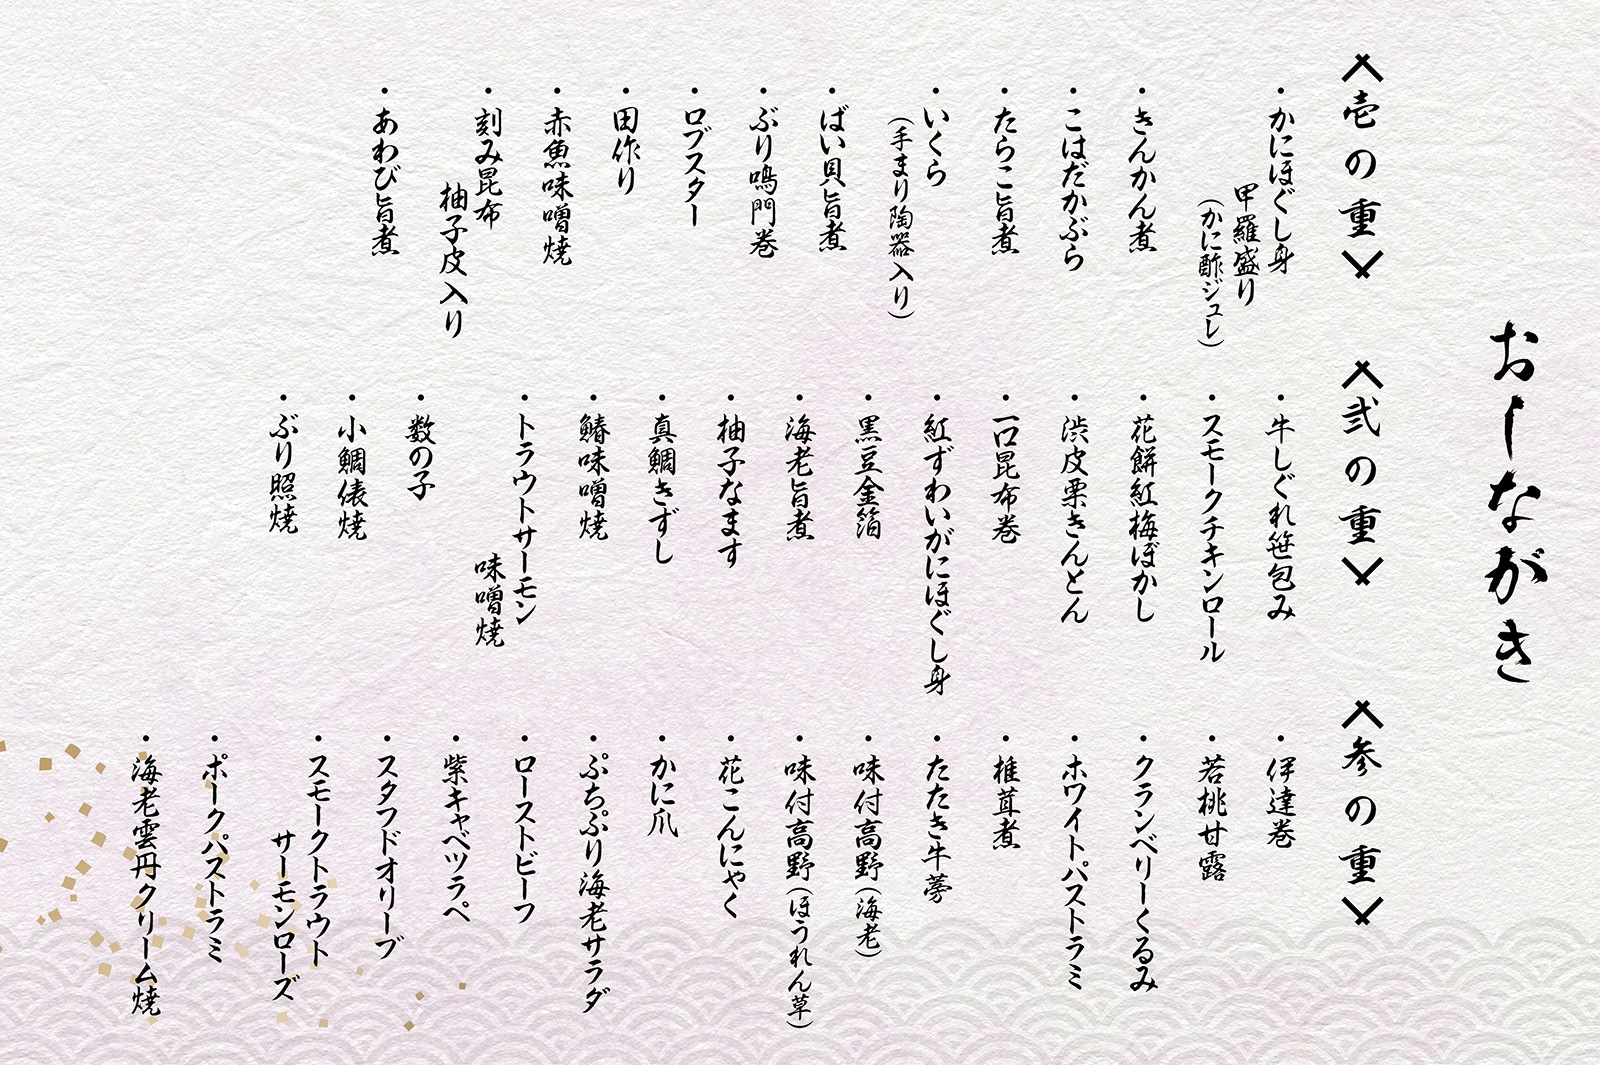 おしながき
〈壱の重〉
・かにほぐし身
甲羅盛り
(かに酢ジュレ)
・きんかん煮
・こはだかぶら
・たらこ旨煮
・いくら
(手まり陶器入り)
・ばい貝旨煮
・ぶり鳴門巻
・ロブスター
・田作り
・赤魚味噌焼
・刻み昆布
柚子皮入り
・あわび旨煮
〈弐の重〉
・牛しぐれ笹包み
・スモークチキンロール
・花餅紅梅ぼかし
・渋皮栗きんとん
・一口昆布巻
・紅ずわいがにほぐし身
・黒豆金箔
・海老旨煮
・柚子なます
・真鯛きずし
・鰆味噌焼
・トラウトサーモン
味噌焼
・数の子
・小鯛俵焼
・ぶり照焼
〈参の重〉
・伊達巻
・若桃甘露
・クランベリーくるみ
・ホワイトパストラミ
・椎茸煮
・たたき牛蒡
・味付高野(海老)
・味付高野(ほうれん草)
・花こんにゃく
・かに爪
・ぷちぷり海老サラダ
・ローストビーフ
・紫キャベツラペ
・スタフドオリーブ
・スモークトラウト
サーモンローズ
・ポークパストラミ
・海老雲丹クリーム焼